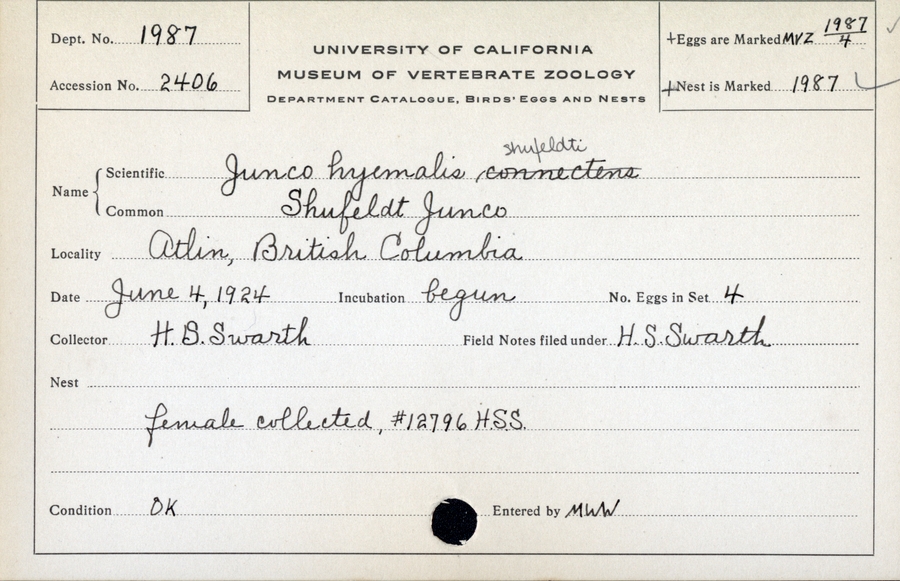 Dept. No. 1987
Accession No. 2406
UNIVERSITY OF CALIFORNIA
MUSEUM OF VERTEBRATE ZOOLOGY
DEPARTMENT CATALOGUE, BIRDS' EGGS AND NESTS
+Eggs are Marked MVZ 1987/4
+Nest is Marked 1987
shufeldti
Name { Scientific Junco hyemalis connectens
Common Shufeldt Junco
Locality Atlin, British Columbia
Date June 4, 1924 Incubation begun No. Eggs in Set 4
Collector H. S. Swarth Field Notes filed under H. S. Swarth
Nest
female collected, #12796 H.S.S.
Condition OK Entered by MWW